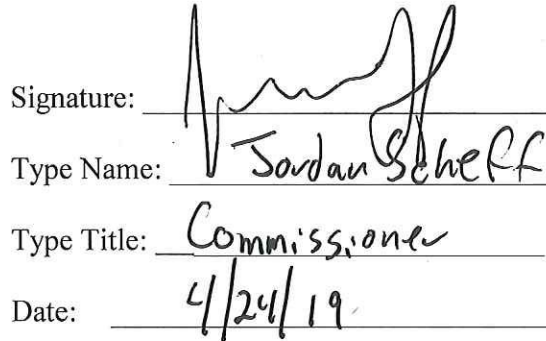 Signature:
Type Name: Jordan Scheff
Type Title: Commissioner
Date: 4/24/19